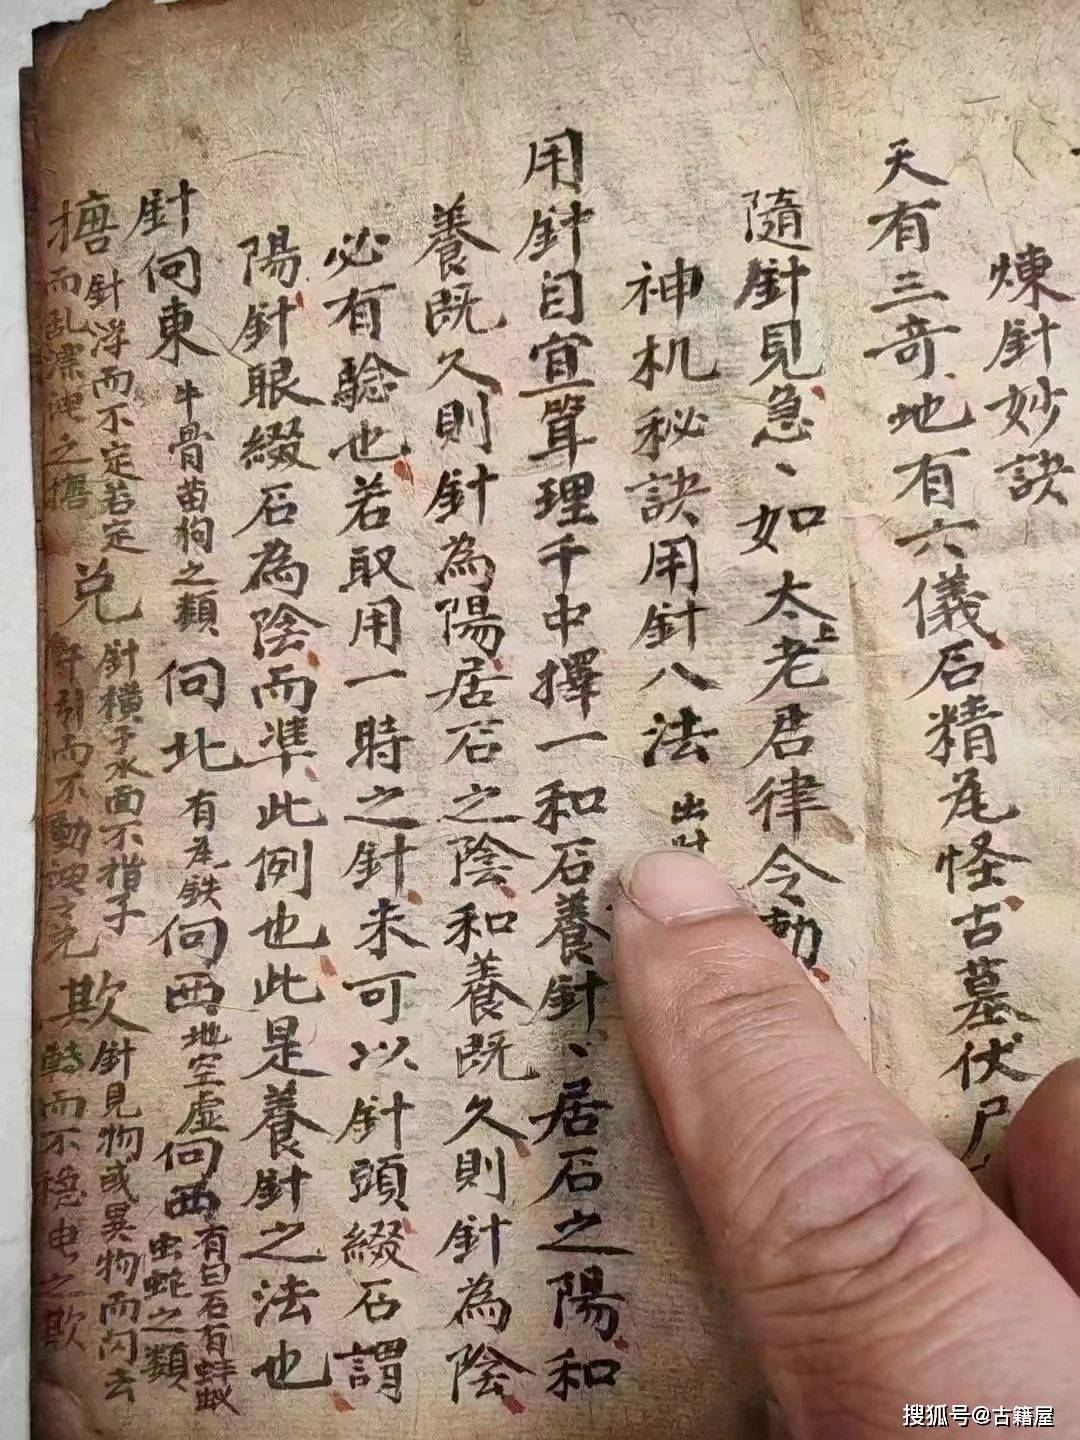 煉針妙訣
天有三奇地有六儀后精尨怪古墓伏尸
隨針見急、如太上老君律令勅
神机秘訣用針八法 出
用針目宜算理千中擇一和石養針、居石之陽和
養既久則針為陽居石之陰和養既久則針為陰
必有驗也若取用一時之針未可以針頭綴石謂
陽針眼綴石為陰而準此例也此是養針之法也
針向東 牛骨苗狗之類 向北 有尨鉄 向西 地空虚 向西 有白石有蚌蟻虫蛇之類
搪 針浮而不定若定而乱漂謂之搪 兌 針横于水面不指子午引而不動謂之兌 欺 針見物或異物而閃去轉而不穩
搜狐号@古籍屋